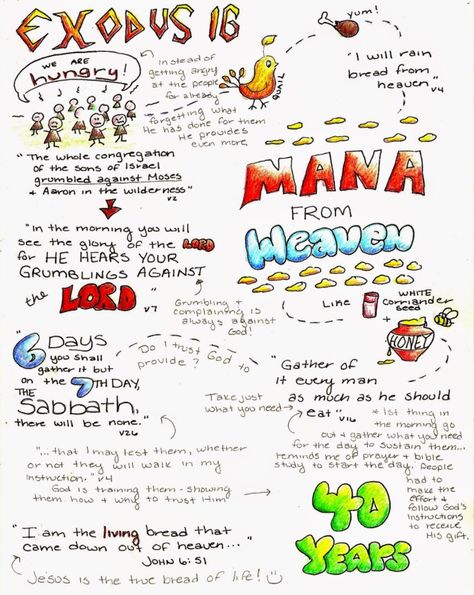 EXODUS 16
WE ARE
hungry!
instead of
getting angry
at the people
for already
forgetting what
He has done for them
He provides
even more.
QUAIL
yum!
"I will rain
bread from
heaven" v4
"The whole congregation
of the sons of Israel
grumbled against Moses
& Aaron in the wilderness"
v2
MANA
FROM
Heaven
"In the morning you will
see the glory of the LORD
for HE HEARS YOUR
GRUMBLINGS AGAINST
the LORD"
v7
Grumbling +
complaining is
always against
God!
LIKE
WHITE
CORRIANDER
SEED
+
HONEY
6 DAYS
you shall
gather it but
on the 7TH DAY,
THE
Sabbath,
there will be none."
v26
Do I trust God to
provide?
"Gather of
it every man
as much as he should
eat" v16
Take just
what you need
& 1st thing in
the morning go
out & gather what you need
for the day to sustain them...
reminds me of prayer + bible
study to start the day. People
had to
make the
effort &
follow God's
instructions
to receive
His gift.
"...that I may test them, whether
or not they will walk in my
instruction." v4
God is training them - showing
them how & why to trust Him
40
YEARS
"I am the living bread that
came down out of heaven..."
JOHN 6:51
Jesus is the true bread of life!